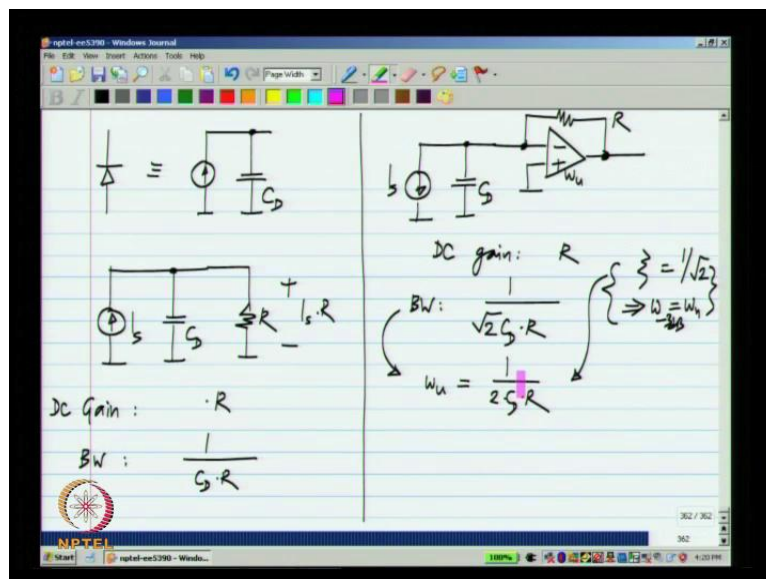 nptel-ee5390 - Windows Journal
File Edit View Insert Actions Tools Help
Page Width
B I
≡
C_D
I_s
C_D
R
+
I_s·R
−
DC Gain : ·R
BW : 1/(C_D·R)
R
I_s
C_D
−
+
ω_u
DC gain: R
BW: 1/(√2 C_D·R)
{ξ = 1/√2
⇒ ω_-3dB = ω_n}
ω_u = 1/(2·C_D·R)
362 / 362
362
NPTEL
Start
nptel-ee5390 - Windo...
100%
4:20 PM